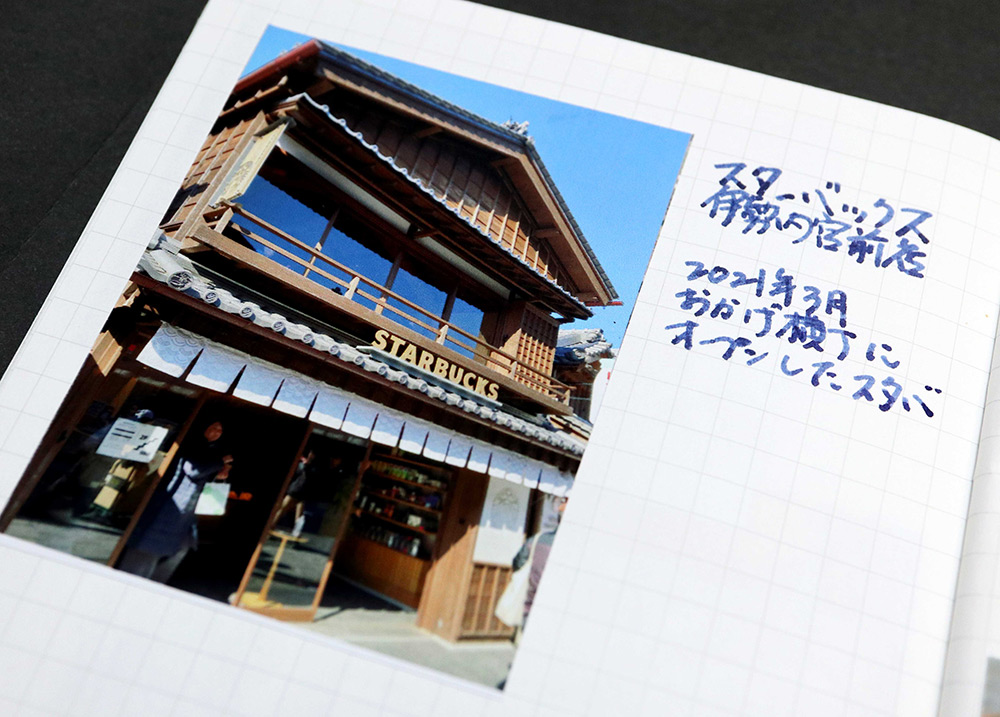 スターバックス
伊勢内宮前店
2021年3月
おかげ横丁に
オープンしたスタバ
STARBUCKS